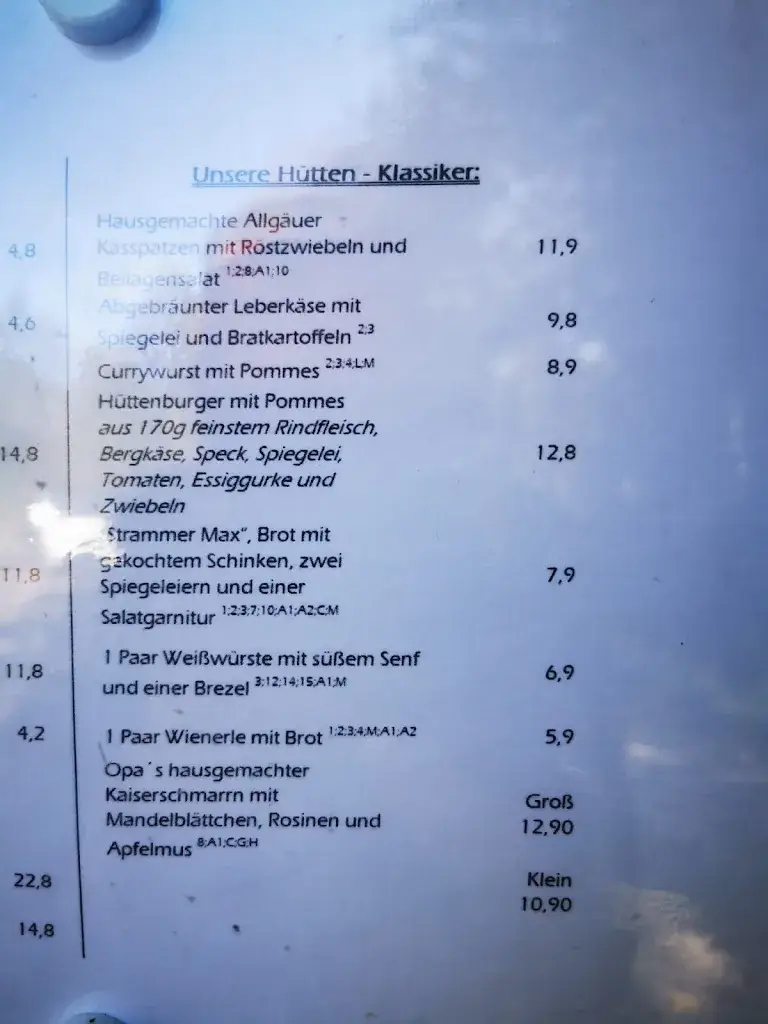 Unsere Hütten - Klassiker:
Hausgemachte Allgäuer
4,8 Kasspatzen mit Röstzwiebeln und 11,9
Beilagensalat 1;2;8;A1;10
Abgebräunter Leberkäse mit
4,6 Spiegelei und Bratkartoffeln 2;3 9,8
Currywurst mit Pommes 2;3;4;L;M 8,9
Hüttenburger mit Pommes
aus 170g feinstem Rindfleisch,
14,8 Bergkäse, Speck, Spiegelei, 12,8
Tomaten, Essiggurke und
Zwiebeln
"Strammer Max", Brot mit
gekochtem Schinken, zwei
11,8 Spiegeleiern und einer 7,9
Salatgarnitur 1;2;3;7;10;A1;A2;C;M
1 Paar Weißwürste mit süßem Senf
11,8 und einer Brezel 3;12;14;15;A1;M 6,9
4,2 1 Paar Wienerle mit Brot 1;2;3;4;M;A1;A2 5,9
Opa´s hausgemachter
Kaiserschmarrn mit Groß
Mandelblättchen, Rosinen und 12,90
Apfelmus 8;A1;C;G;H
22,8 Klein
10,90
14,8